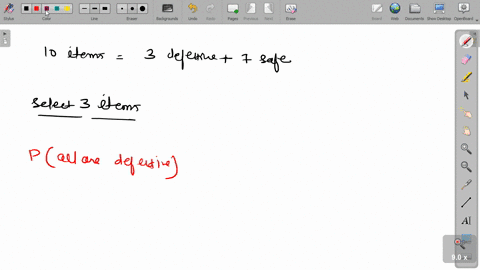 Color
Line
Eraser
Backgrounds
Undo
Redo
Pages
Previous
Next
Erase
Board
Web
Documents
Show Desktop
OpenBoard
10 items = 3 defective + 7 safe
select 3 items
P (all are defective)
9.0 x